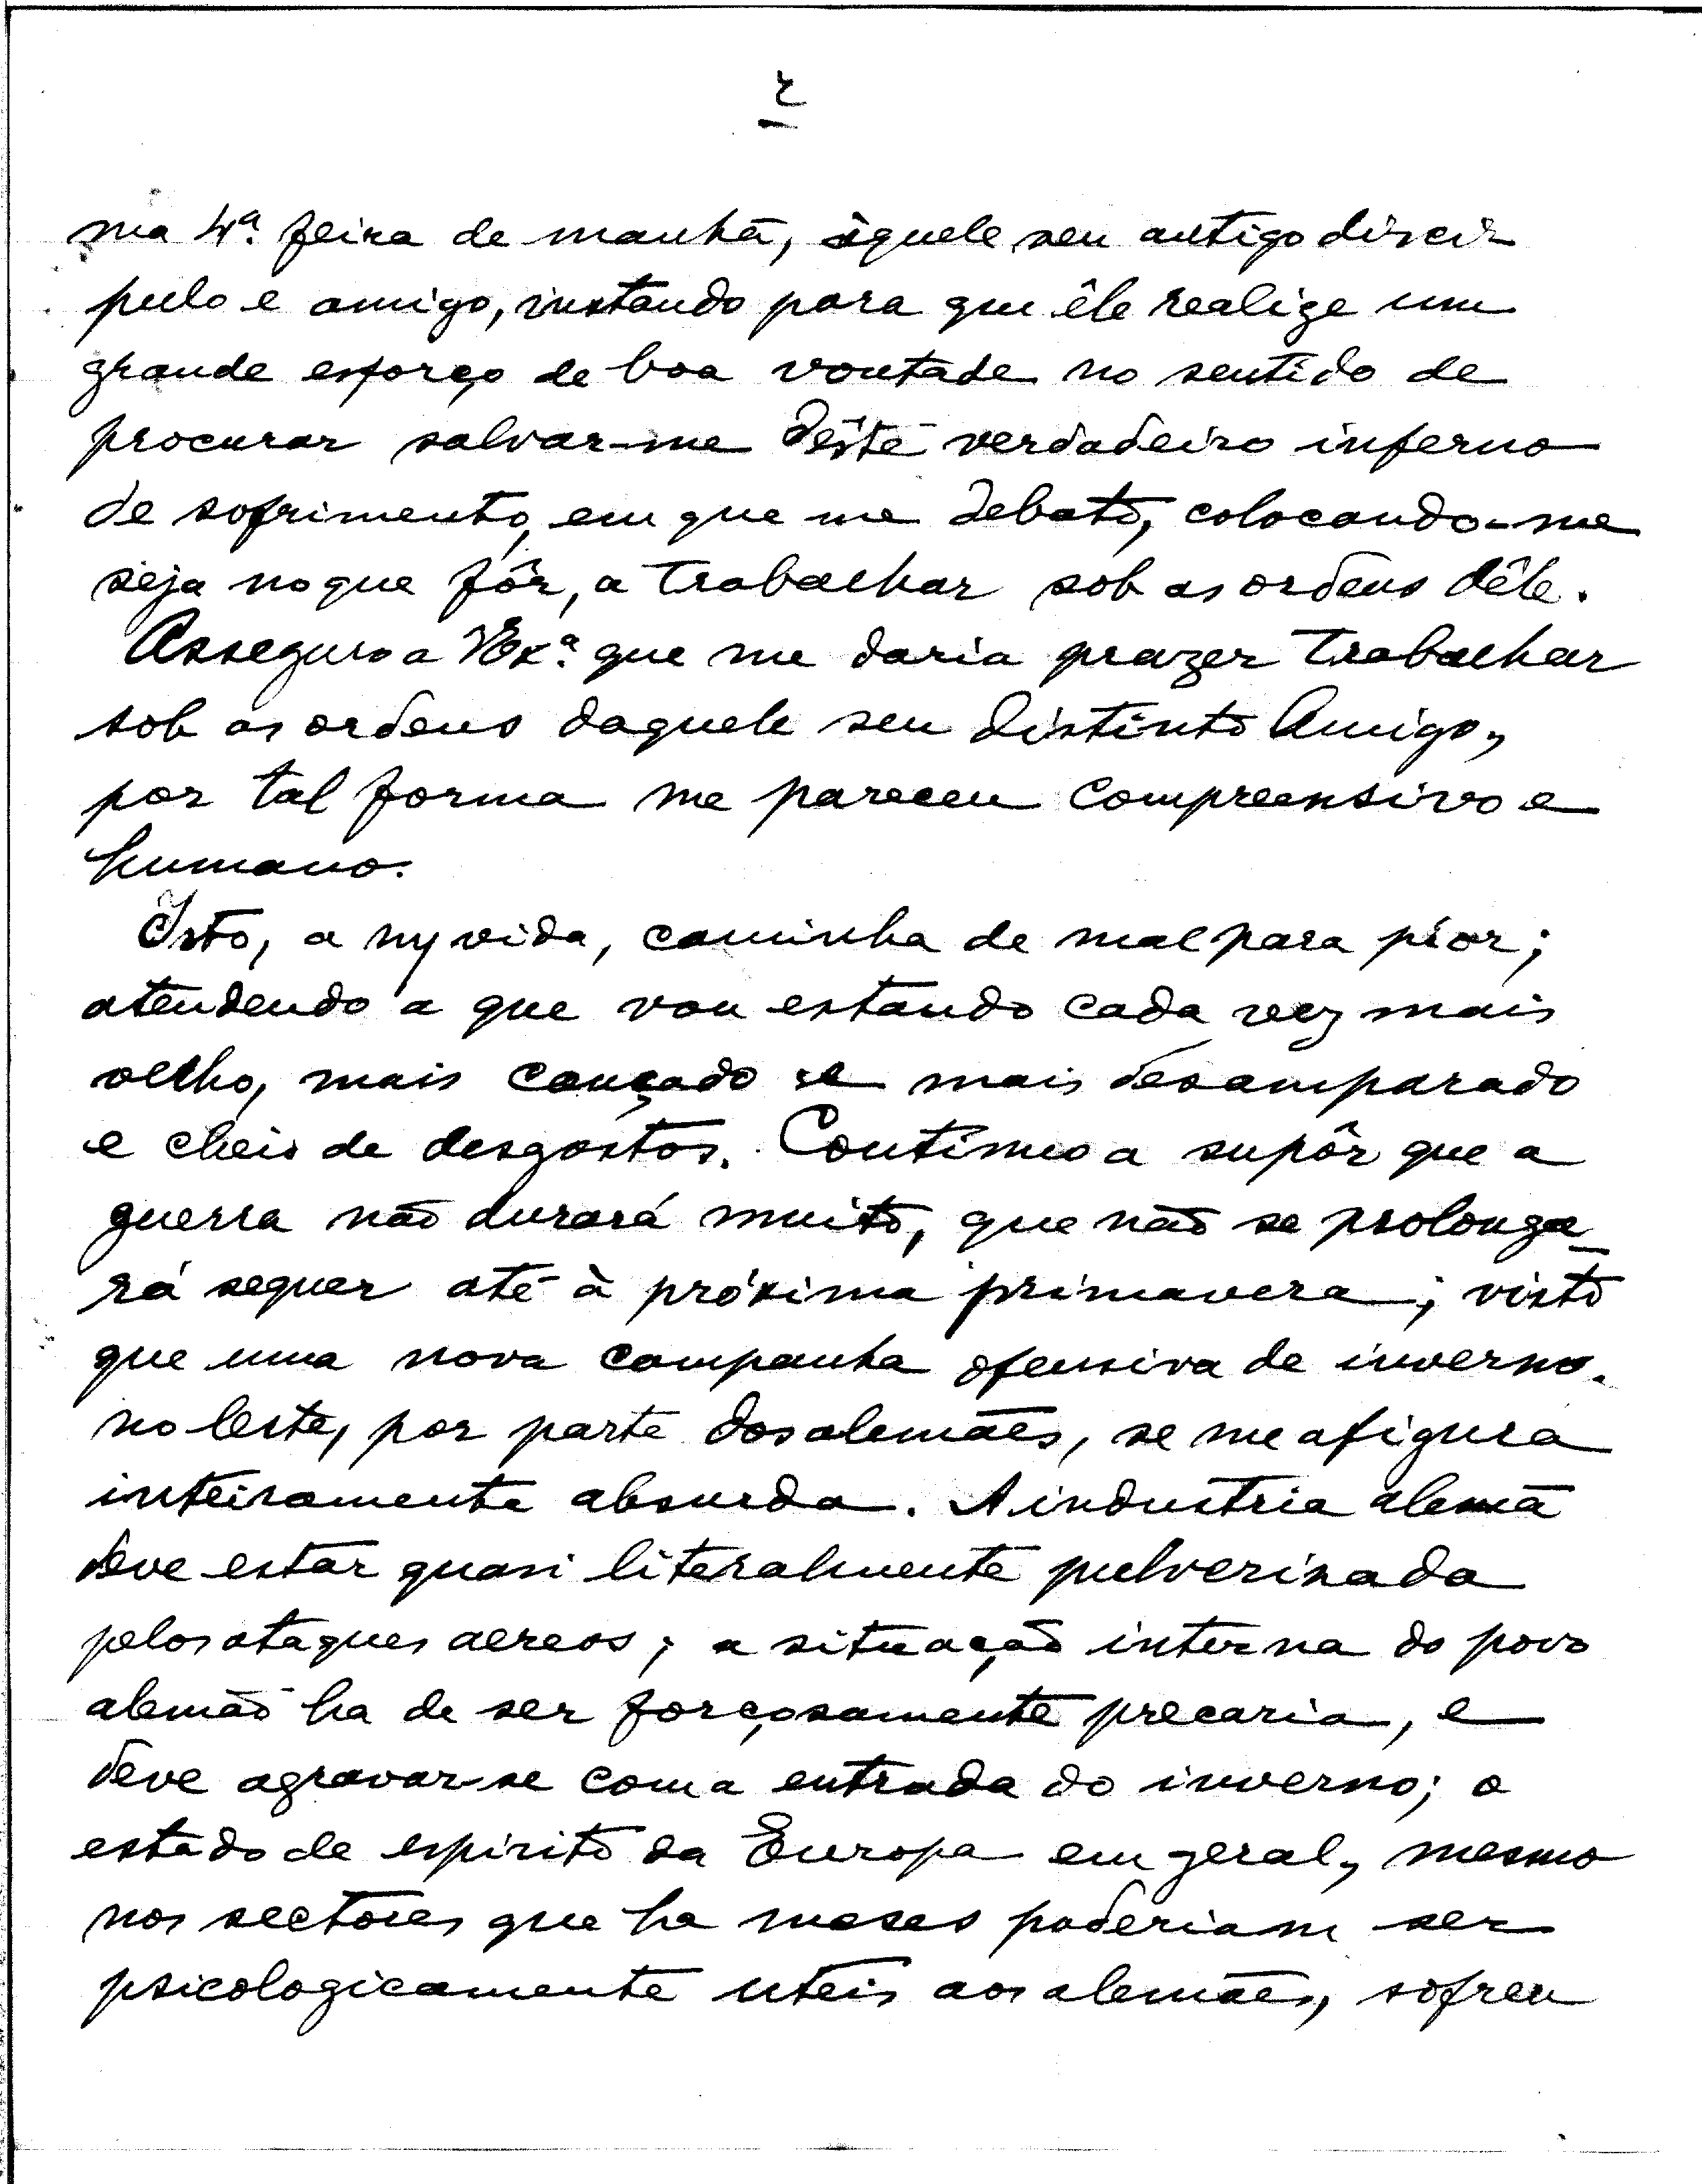 2
ma 4ª. feira de manhã, àquele seu antigo disci-
pulo e amigo, instando para que êle realize um
grande esforço de boa vontade no sentido de
procurar salvar-me dêste verdadeiro inferno
de sofrimento, em que me debato, colocando-me
seja no que fôr, a trabalhar sob as ordens dêle.
Asseguro a VExª. que me daria prazer trabalhar
sob as ordens daquele seu distinto Amigo,
por tal forma me pareceu compreensivo e
humano.
Isto, a vida, caminha de mal para pior;
atendendo a que vou estando cada vez mais
velho, mais cançado e mais desamparado
e cheio de desgostos. Continuo a supôr que a
guerra não durará muito, que não se prolonga-
rá sequer até à próxima primavera; visto
que uma nova campanha ofensiva de inverno
no leste, por parte dos alemães, se me afigura
inteiramente absurda. A industria alemã
deve estar quasi literalmente pulverisada
pelos ataques aereos; a situação interna do povo
alemão ha de ser forçosamente precaria, e
deve agravar-se com a entrada do inverno; o
estado de espirito da Europa em geral, mesmo
nos sectores que ha meses poderiam ser
psicologicamente uteis aos alemães, sofreu